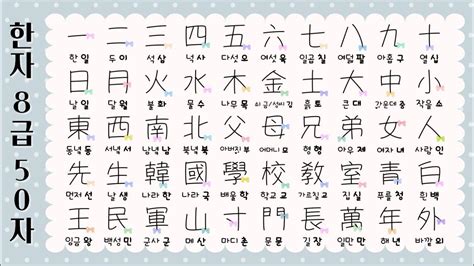 한자 8급 50자
一 二 三 四 五 六 七 八 九 十
한 일 두 이 석 삼 넉 사 다섯 오 여섯 육 일곱 칠 여덟 팔 아홉 구 열 십
日 月 火 水 木 金 土 大 中 小
날 일 달 월 불 화 물 수 나무 목 쇠 금/성씨 김 흙 토 큰 대 가운데 중 작을 소
東 西 南 北 父 母 兄 弟 女 人
동녘 동 서녘 서 남녘 남 북녘 북 아버지 부 어머니 모 형 형 아우 제 여자 녀 사람 인
先 生 韓 國 學 校 敎 室 靑 白
먼저 선 날 생 나라 한 나라 국 배울 학 학교 교 가르칠 교 집 실 푸를 청 흰 백
王 民 軍 山 寸 門 長 萬 年 外
임금 왕 백성 민 군사 군 메 산 마디 촌 문 문 길 장 일만 만 해 년 바깥 외